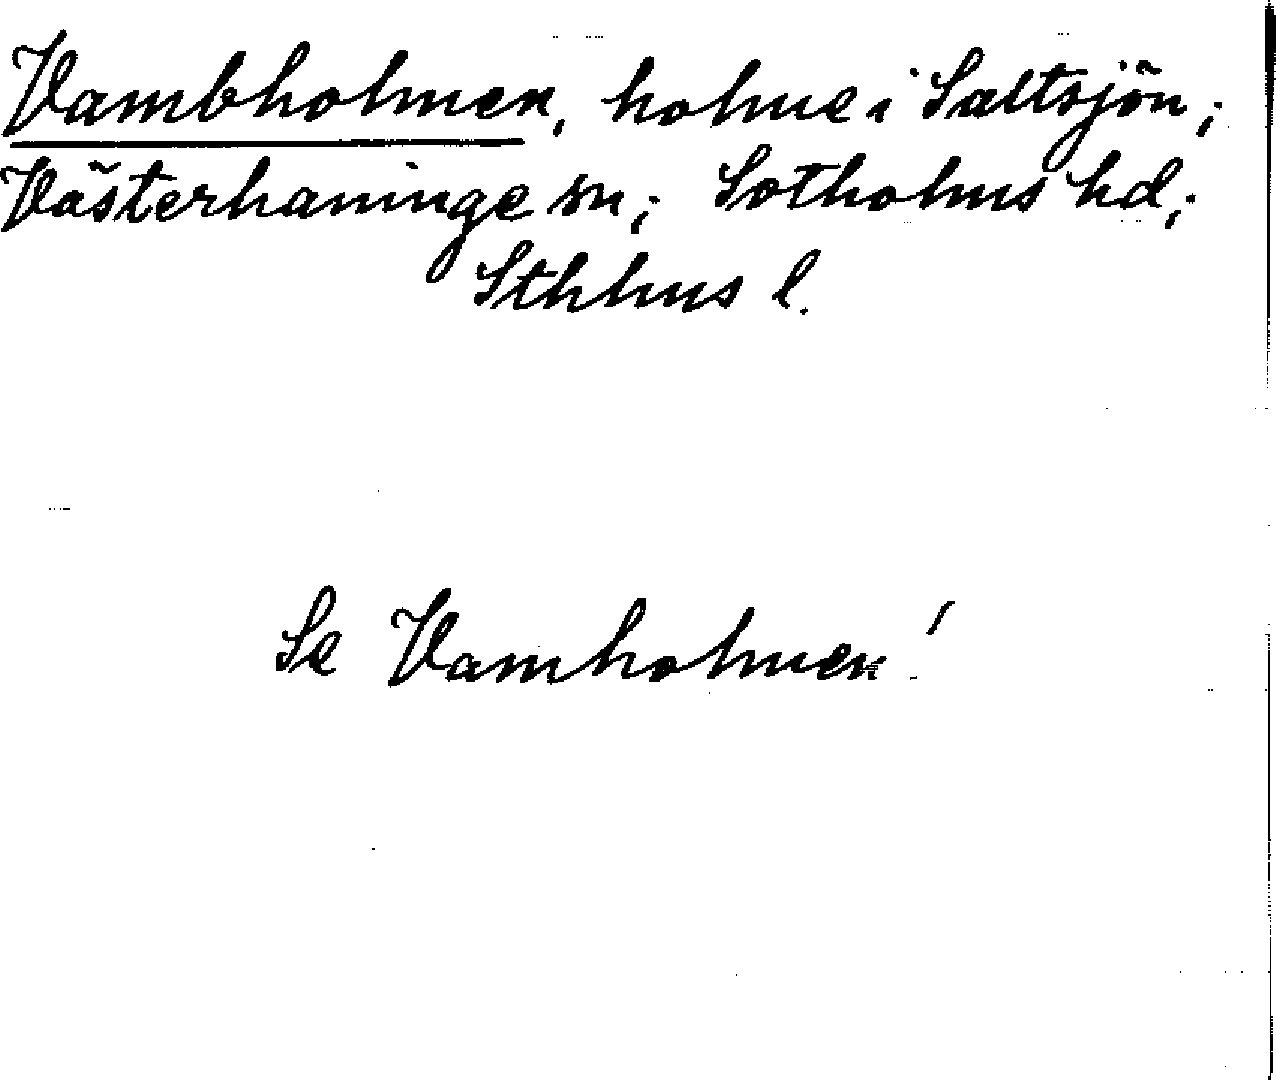 Vambholmen, holme i Saltsjön;
Västerhaninge sn; Sotholms hd;
Sthlms l.
Se Vamholmen!